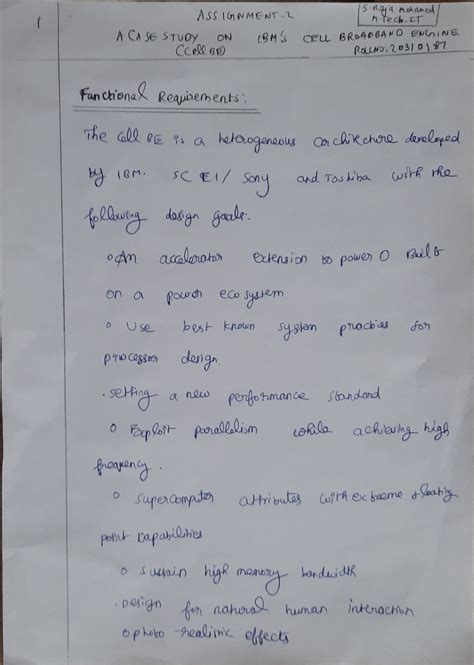 1
ASSIGNMENT-2
S. Raja Mohamed
M.Tech-IT
A CASE STUDY ON IBM'S CELL BROADBAND ENGINE
(Cell BE)
ROLLNO: 20310187
Functional Requirements:
The Cell BE is a heterogeneous architecture developed
by IBM. SCEI/ Sony and Toshiba with the
following design goals:
o An accelerator extension to power O Built
on a power ecosystem.
o Use best known system practices for
processor design.
. setting a new performance standard
o Exploit parallelism while achieving high
frequency.
o supercomputer attributes with extreme floating
point capabilities
o sustain high memory bandwidth
. Design for natural human interaction
o photo-realistic effects